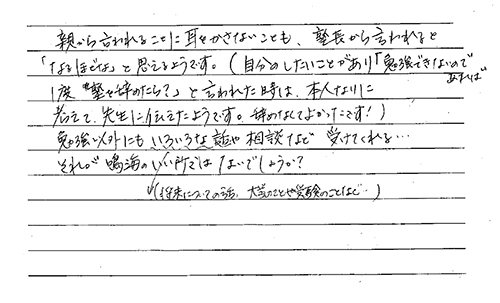 親から言われることに耳をかさないことも、塾長から言われると
「なるほどな」と思えるようです。(自分のしたいことがあり「勉強できないので
あれば
1度“塾を辞めたら?”と言われた時は、本人なりに
考えて、先生に伝えたようです。辞めなくてよかったです!)
勉強以外にもいろいろな話や相談など受けてくれる…
それが鳴海のいい所ではないでしょうか?
(将来についての話、大学のことや受験のことなど…)